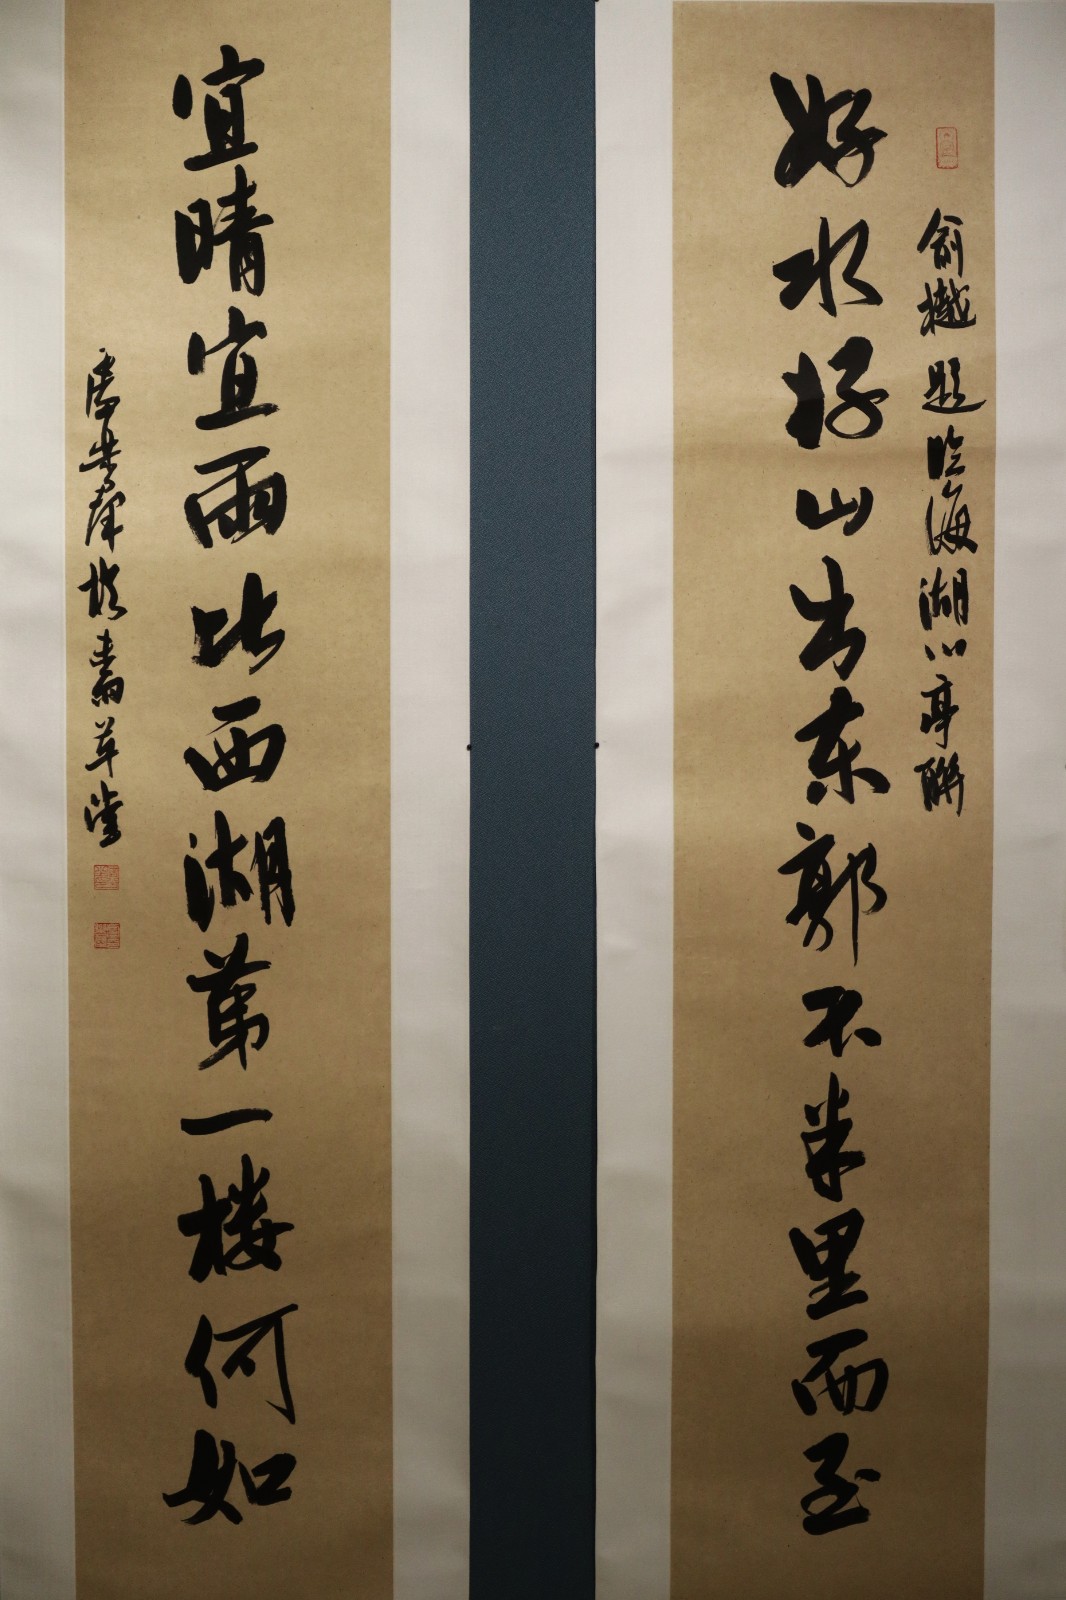 俞樾題临海湖心亭聯
好水好山出东郭不半里而至
宜晴宜雨比西湖第一楼何如
盧樂群於草堂